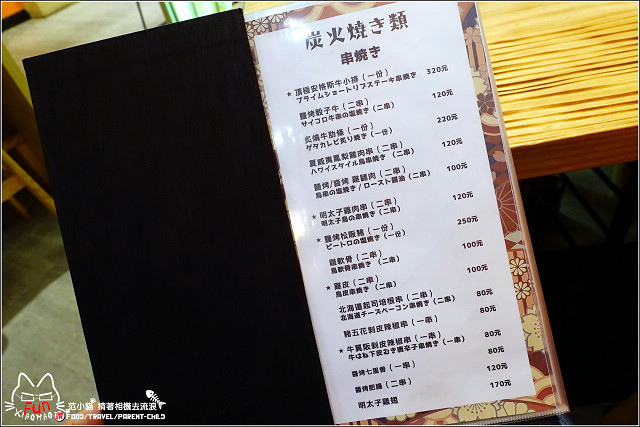 炭火燒き類
串燒き
★ 頂極安格斯牛小排（一份） 320元
プライムショートリブステーキ串燒き
鹽烤骰子牛（二串） 120元
サイコロ牛串の塩燒き（二串）
炙燒牛肋條（一份） 220元
ゲタカレビ炙り燒き（一份）
夏威夷鳳梨雞肉串（二串） 120元
ハワイスタイル鳥串燒き（二串）
鹽烤/醬烤 雞腿肉（二串） 100元
鳥串の塩燒き/ロースト醬油（二串）
★ 明太子雞肉串（二串） 120元
明太子鳥の串燒き（二串）
★ 鹽烤松阪豬（一份） 250元
ピートロの塩燒き（一份）
雞軟骨（二串） 100元
鳥軟骨串燒き（二串）
★ 雞皮（二串） 100元
鳥皮串燒き（二串）
北海道起司培根串（二串） 80元
北海道チーズベーコン串燒き（二串）
豬五花剝皮辣椒串（一串） 80元
★ 牛翼板剝皮辣椒串（一串） 80元
牛はね下皮むき唐辛子串燒き（一串）
醬烤七里香（一串） 80元
醬烤肥腸（二串） 120元
明太子雞翅 170元
Fun
范小貓 揹著相機去流浪
FOOD/TRAVEL/PARENT-CHILD